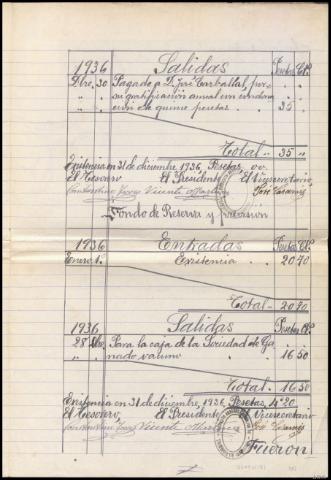 1936 Salidas Pesetas Cts.
Dbre. 30 Pagado a D. José Carballal, por
su gratificación anual con
ción de quince pesetas 35 "
Total 35 "
Existencia en 31 de diciembre 1936 Pesetas 00
El Tesorero El Presidente El Vicesecretario,
Vicente José
Fondo de Reserva y
1936 Entradas Pesetas Cts.
Enero 1º. Existencia 20 70
Total 20 70
1936 Salidas Pesetas Cts.
28 Para la caja de la Sociedad de Ga
nado vacuno 16 50
Total 16 50
Existencia en 31 de diciembre, 1936 Pesetas, 4'20
El Tesorero, El Presidente El Vicesecretario
Vicente José
Fueron